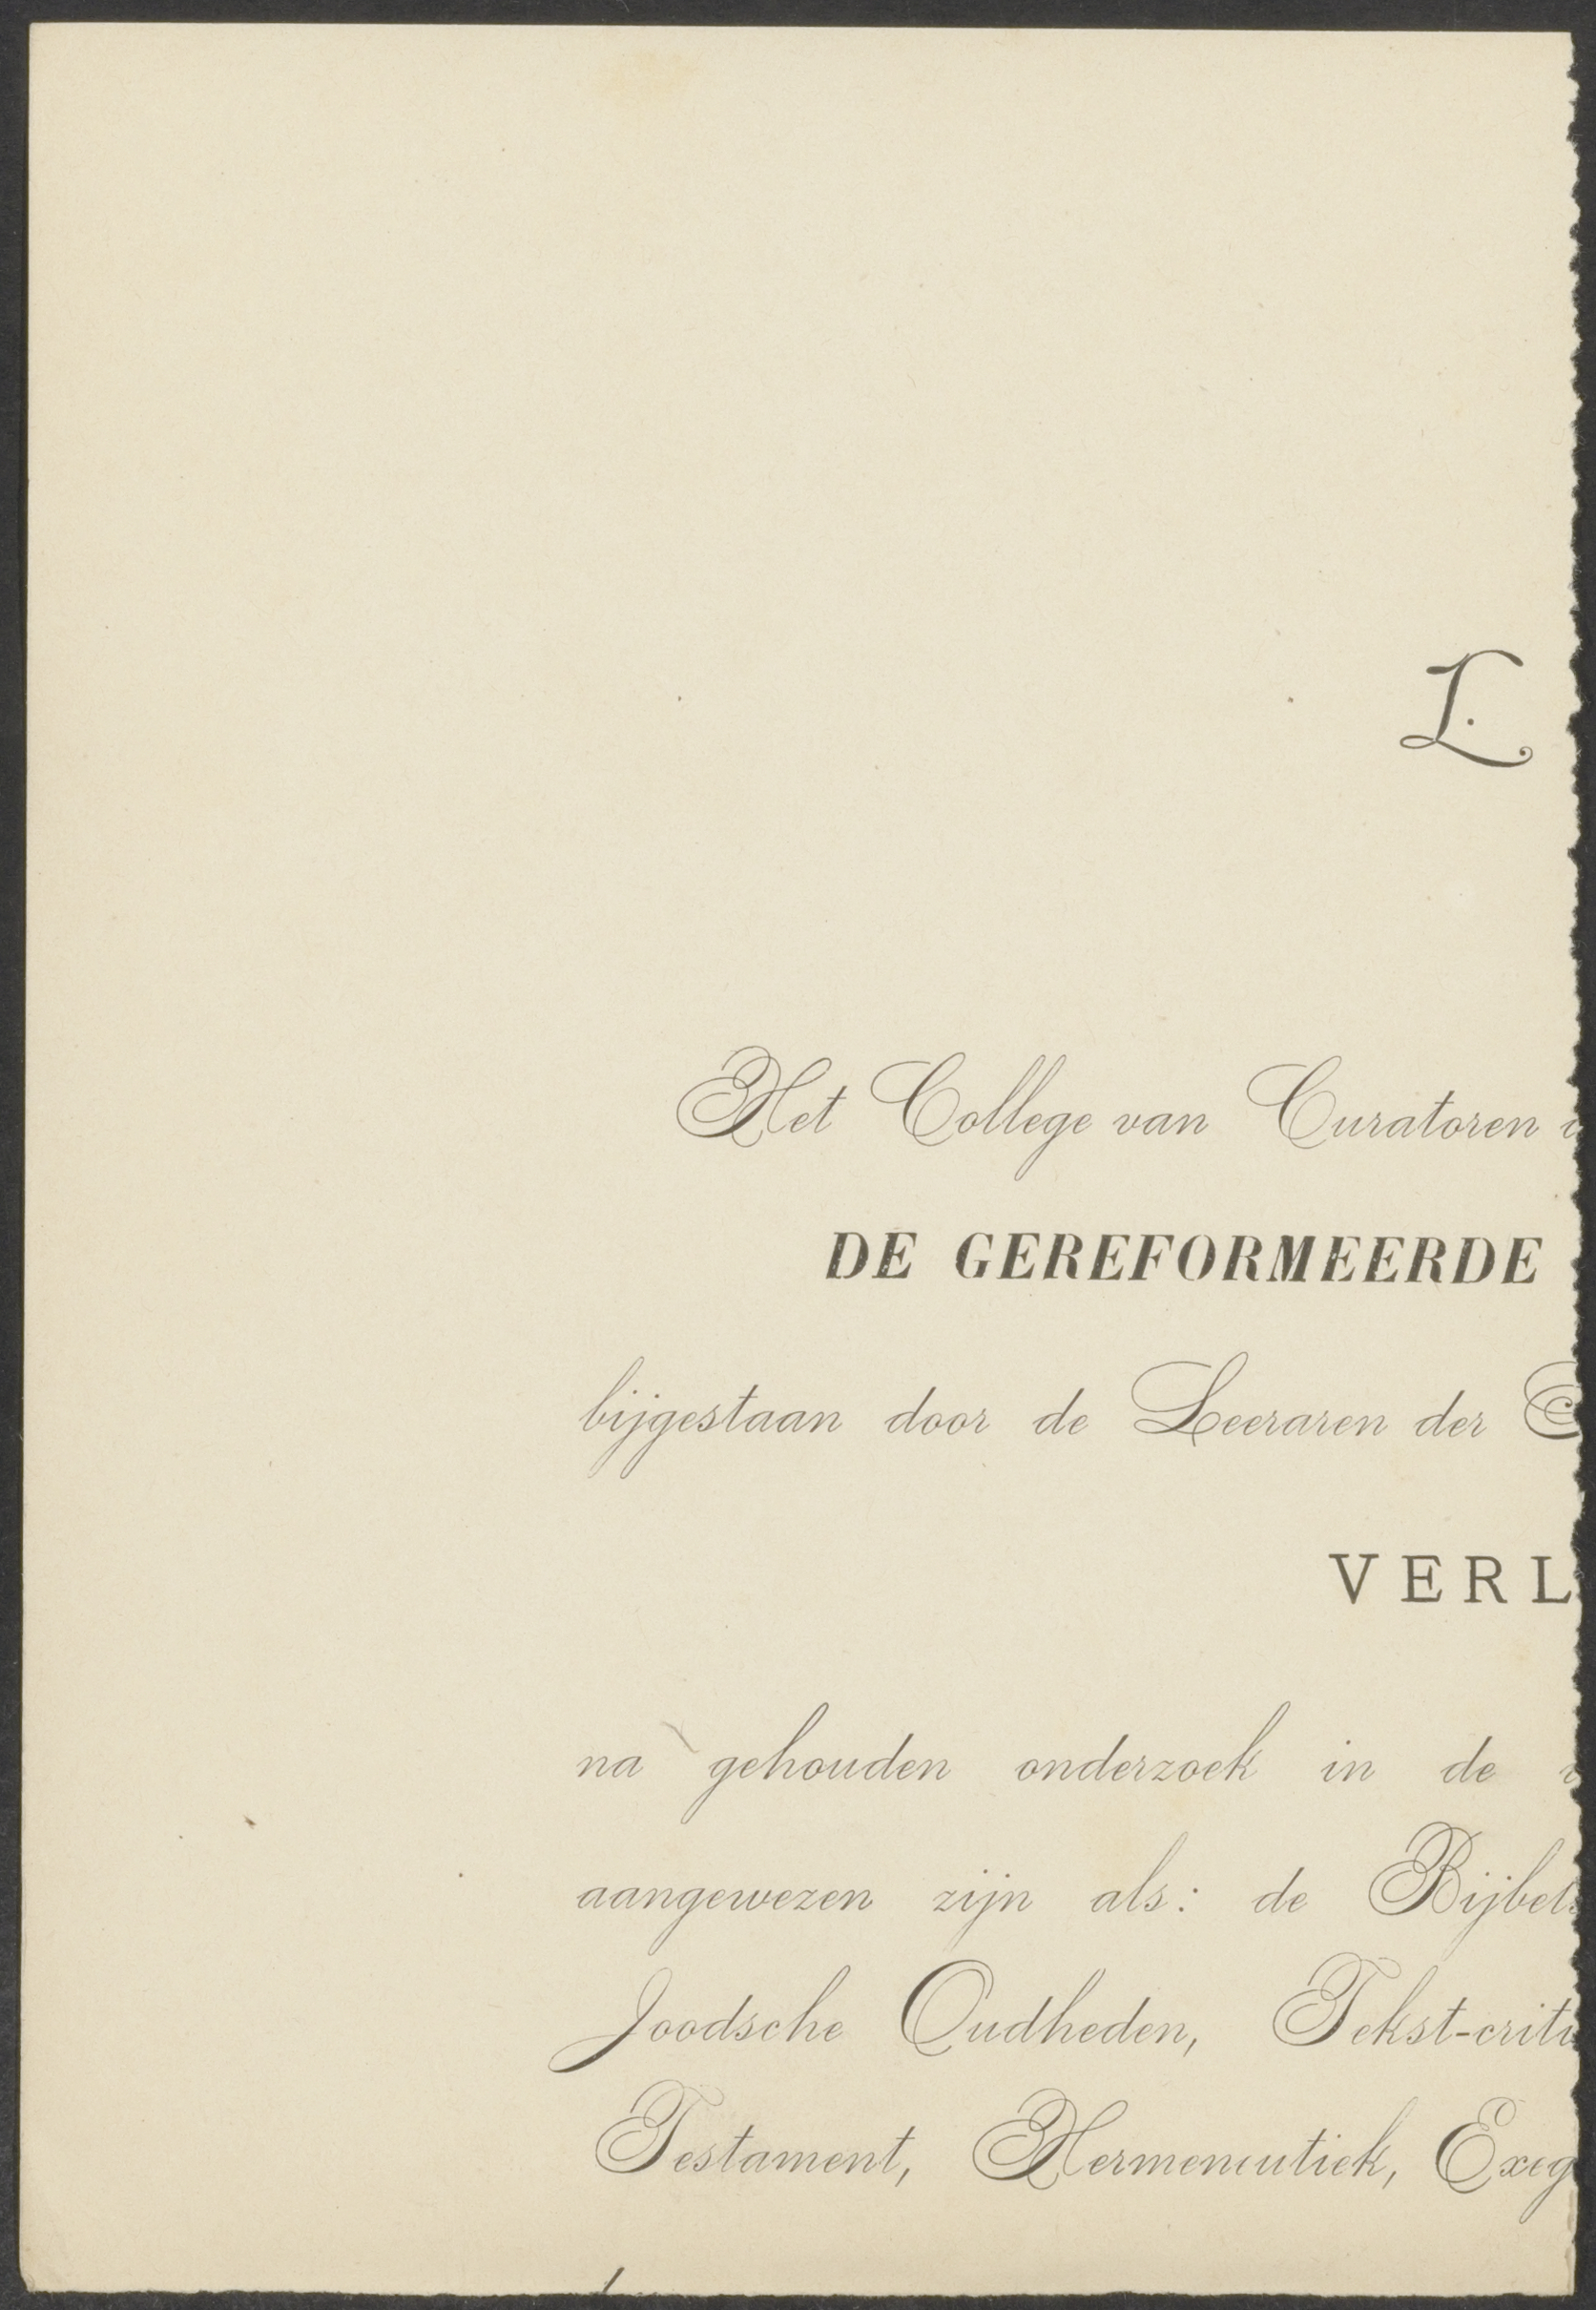 L.
Het College van Curatoren
DE GEREFORMEERDE
bijgestaan door de Leeraren der
VERL
na gehouden onderzoek in de
aangewezen zijn als: de Bijbels
Joodsche Oudheden, Tekst-criti
Testament, Hermeneutiek, Exeg